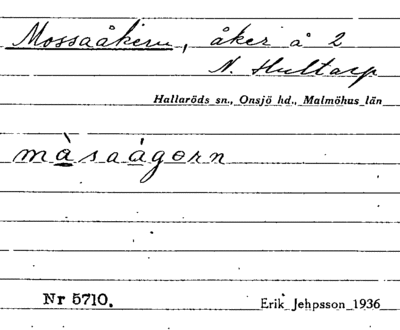 Mossaåkern, åker å 2
N. Hultarp
Hallaröds sn., Onsjö hd., Malmöhus län
màsaágɵrn
Nr 5710.
Erik Jehpsson 1936